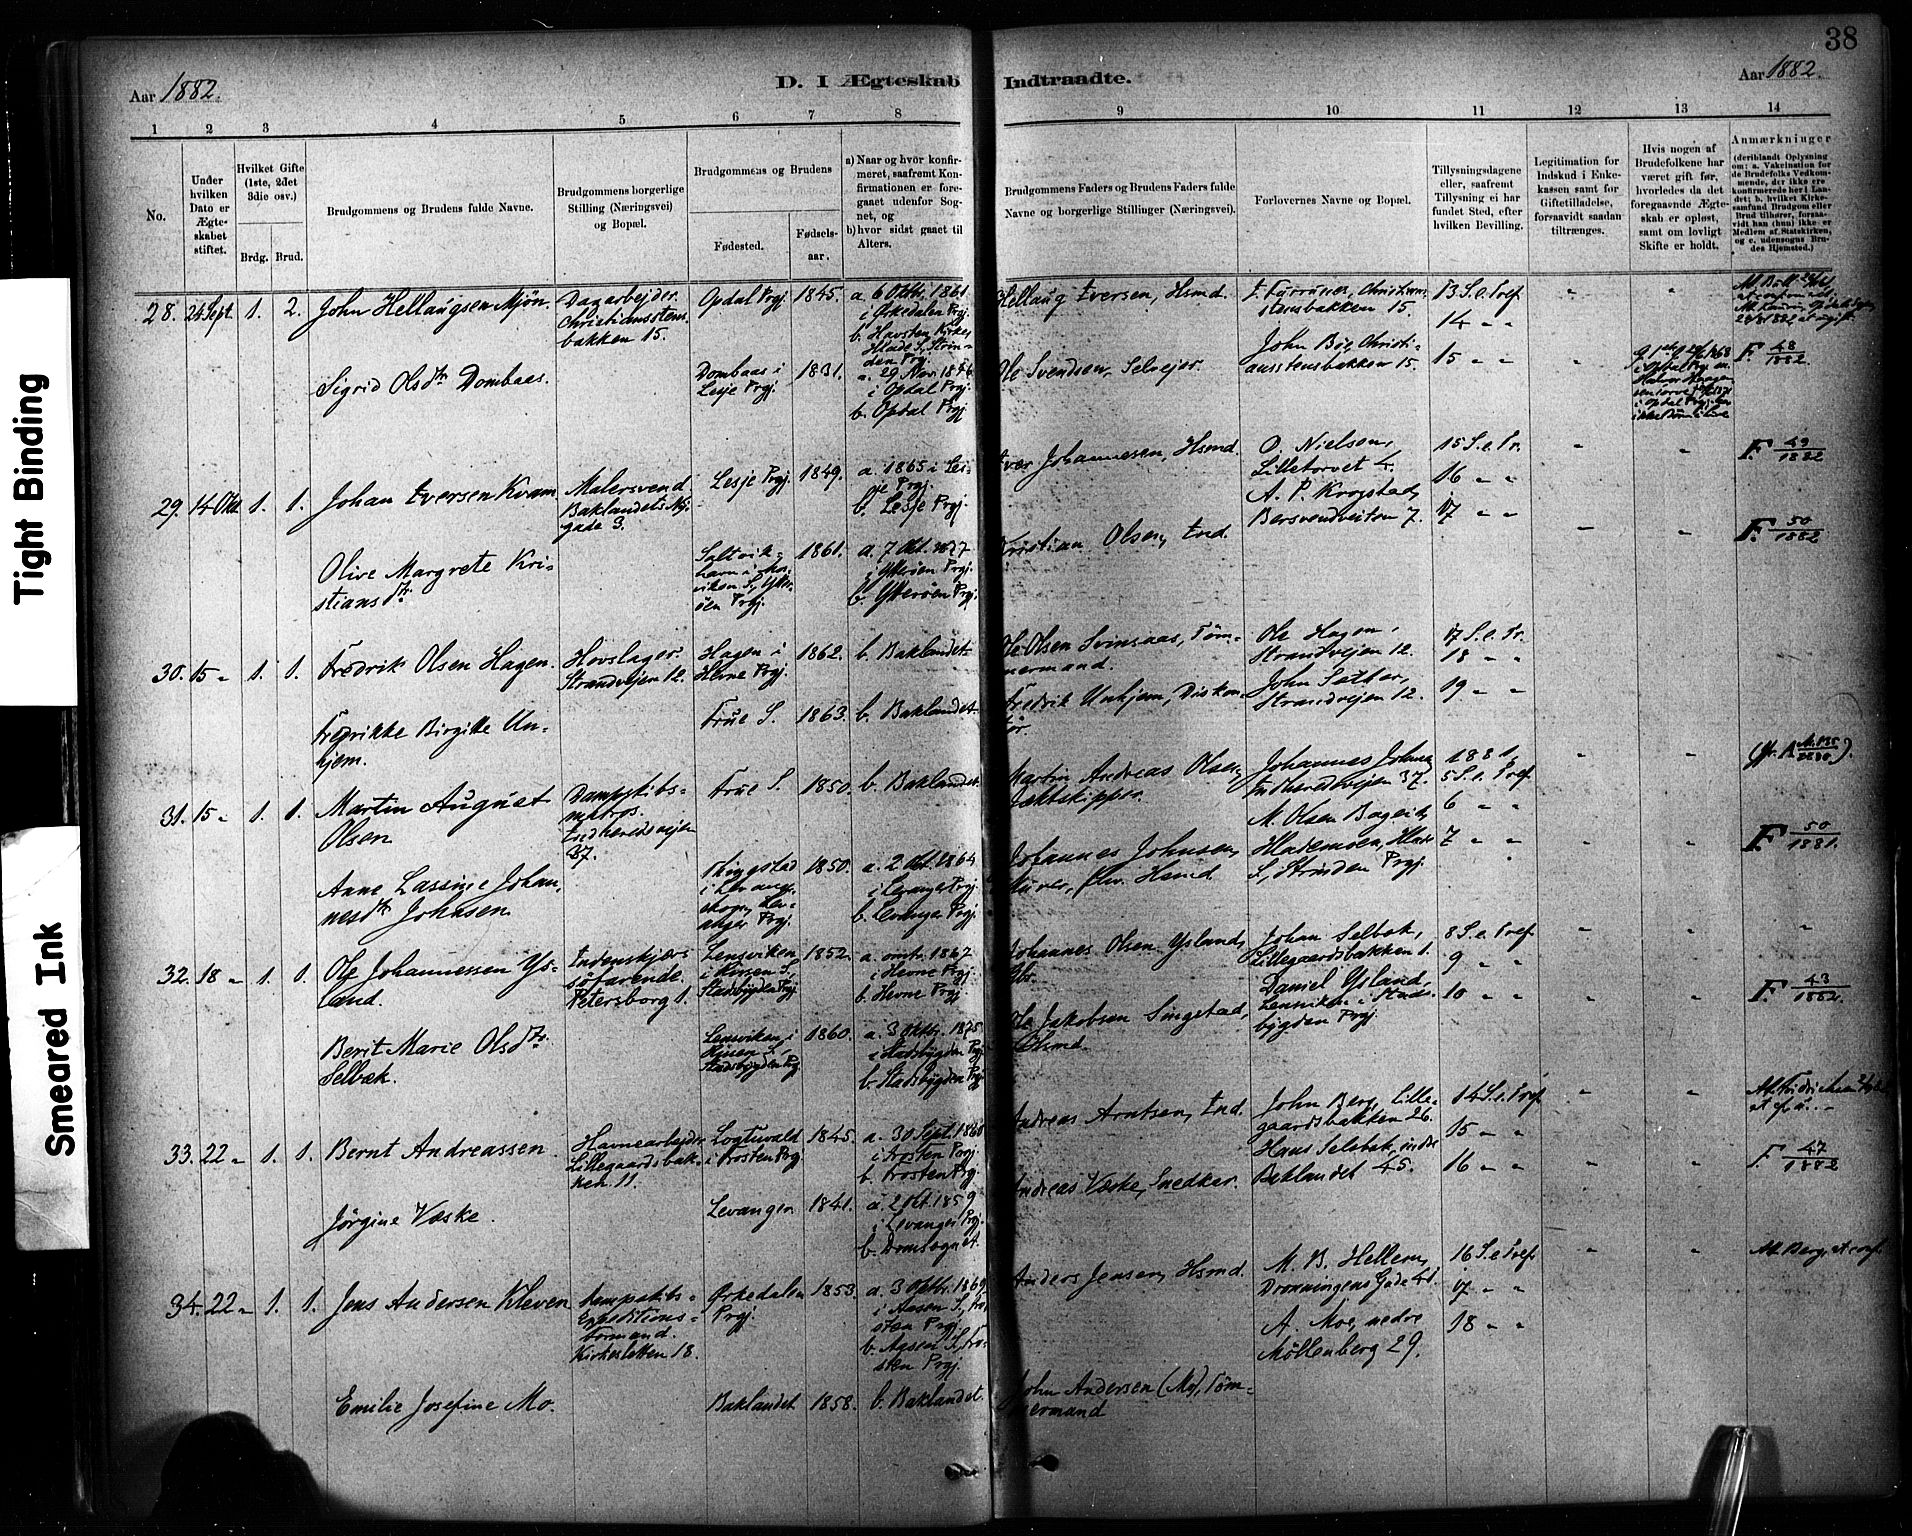 38
Aar 1882.
D. I Ægteskab Indtraadte.
Aar 1882.
1 2 3 4 5 6 7 8 9 10 11 12 13 14
No.
Under hvilken Dato er Ægteskabet stiftet.
Hvilket Gifte (1ste, 2det 3die osv.)
Brdg. Brud.
Brudgommens og Brudens fulde Navne.
Brudgommens borgerlige Stilling (Næringsvei) og Bopæl.
Brudgommens og Brudens
Fødested.
Fødselsaar.
a) Naar og hvor konfirmeret, saafremt Konfirmationen er foregaaet udenfor Sognet, og
b) hvor sidst gaaet til Alters.
Brudgommens Faders og Brudens Faders fulde Navne og borgerlige Stillinger (Næringsvei).
Forlovernes Navne og Bopæl.
Tillysningsdagene eller, saafremt Tillysning ei har fundet Sted, efter hvilken Bevilling.
Legitimation for Indskud i Enkekassen samt for Giftetilladelse, forsaavidt saadan tiltrænges.
Hvis nogen af Brudefolkene har været gift før, hvorledes da det foregaaende Ægteskab er opløst, samt om lovligt Skifte er holdt.
Anmærkninger
(deriblandt Oplysning om: a. Vakcination for de Brudefolks Vedkommende, der ikke ere konfirmerede her i Landet; b. hvilket Kirkesamfund Brudgom eller Brud tilhører, forsaavidt han (hun) ikke er Medlem af Statskirken, og c. udensogns Brudes Hjemsted.)
28. 24 Sept. 1. 2. John Hellaugsen Mjøn.
Dagarbejder.
Christiansstensbakken 15.
Opdal Prgj. 1845.
a. 6 Oktbr. 1861
i Ørkedalen Prgj.
b. Havsten Kirke,
Hellaug Iversen, Hsmd.
stensbakken 15.
John Bøe, Christiansstensbakken 15.
13 S. e. Tref.
14 " "
15 " "
Sigrid Olsdtr Dombaas.
Dombaas i
Lesje Prgj. 1831.
a. 29 Nov. 1846
i Opdal Prgj.
b. Opdal Prgj.
Ole Svendsen, Selvejer.
F. 48/1882
29. 14 Okt. 1. 1. Johan Iversen Kvam
Malersvend
Baklandets Nygade 3.
Lesje Prgj. 1849.
a. 1865 i Lesje Prgj.
b. Lesje Prgj.
Iver Johannesen, Hsmd.
O. Nielsen,
Lilletorvet 4.
A. P. Krogstad,
Bersvendveiten 7.
15 S. e. Tr.
16 " "
17 " "
F. 49/1882
Olive Margrete Kristiansdtr.
1861.
a. 7 Okt. 1877
i Ytterøen Prgj.
b. Ytterøen Prgj.
Kristian Olsen, Ind.
F. 50/1882
30. 15 " 1. 1. Fredrik Olsen Hagen.
Hovslager.
Strandvejen 12.
Hagen i
Hevne Prgj. 1862.
b. Baklandet
Ole Olsen Svinsaas, Tømmermand.
Ole Hagen,
Strandvejen 12.
John Sæther,
Strandvejen 12.
17 S. e. Tr.
18 " "
19 " "
Fredrikke Birgitte Unhjem.
Frue S. 1863.
b. Baklandet
Fredrik Unhjem,
31. 15 " 1. 1. Martin August
Olsen
Indheredsvejen
37.
Frue S. 1850.
b. Baklandet
Martin Andreas Olsen,
Jægtskipper.
Johannes Johnsen,
Indheredsvejen 37.
M. Olsen Bagerid,
Hlademoen, Hlade
S., Strinden Prgj.
1881,
5 S. e. Tref.
6 " "
7 " "
Anne Lassine Johannesdtr Johnsen.
1850.
a. 2 Okt. 1864
i Levanger Prgj.
b. Levanger Prgj.
Johannes Johnsen,
F. 50/1881.
32. 18 " 1. 1. Ole Johannessen Ysland.
Indenskjers
søfarende.
Petersborg 1.
Lensviken
i Rissen S.,
Stadsbygden Prgj. 1852.
a. omtr. 1867
i Hevne Prgj.
b. Hevne Prgj.
Johannes Olsen Ysland,
Johan Selbæk,
Lillegaardsbakken 1.
Daniel Ysland,
Lensviken i Stadsbygden Prgj.
8 S. e. Tref.
9 " "
10 " "
Berit Marie Olsdtr.
Selbæk.
Lensviken i
Rissen S.,
Stadsbygden Prgj. 1860.
a. 3 Oktbr. 1875
i Stadsbygden Prgj.
b. Stadsbygden Prgj.
Ole Jakobsen Singstad,
F. 43/1882.
33. 22 " 1. 1. Bernt Andreassen.
Havnearbejder
Lillegaardsbakken 11.
i Frosten Prgj. 1845.
a. 30 Sept. 1860
i Frosten Prgj.
b. Frosten Prgj.
Andreas Arntsen, Ind.
John Berg, Lillegaardsbakken 26.
Hans Selsbæk, indre
Baklandet 45.
14 S. e. Tref.
15 " "
16 " "
Jørgine Væske.
Levanger 1841.
a. 2 Okt. 1859
i Levanger Prgj.
b. Domsognet.
Andreas Væske, Snedker.
F. 47/1882
34. 22 " 1. 1. Jens Andersen Kleven
Dampskibs-
Expeditions-
formand.
Kirkesletten 18.
Ørkedalen
Prgj. 1853.
a. 3 Oktbr. 1869
i Aasen S., Frosten Prgj.
b. Aasen S., Frosten Prgj.
Anders Jensen, Hsmd.
M. B. Hellem,
Dronningens Gade 41.
A. Moe, nedre
Møllenberg 29.
16 S. e. Tref.
17 " "
18 " "
Emilie Josefine Mo.
Baklandet 1858.
b. Baklandet.
John Andersen (Mo), Tømmermand
Tight Binding
Smeared Ink